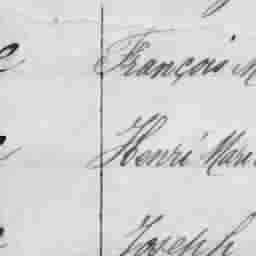 François M
Henri Mari
Joseph